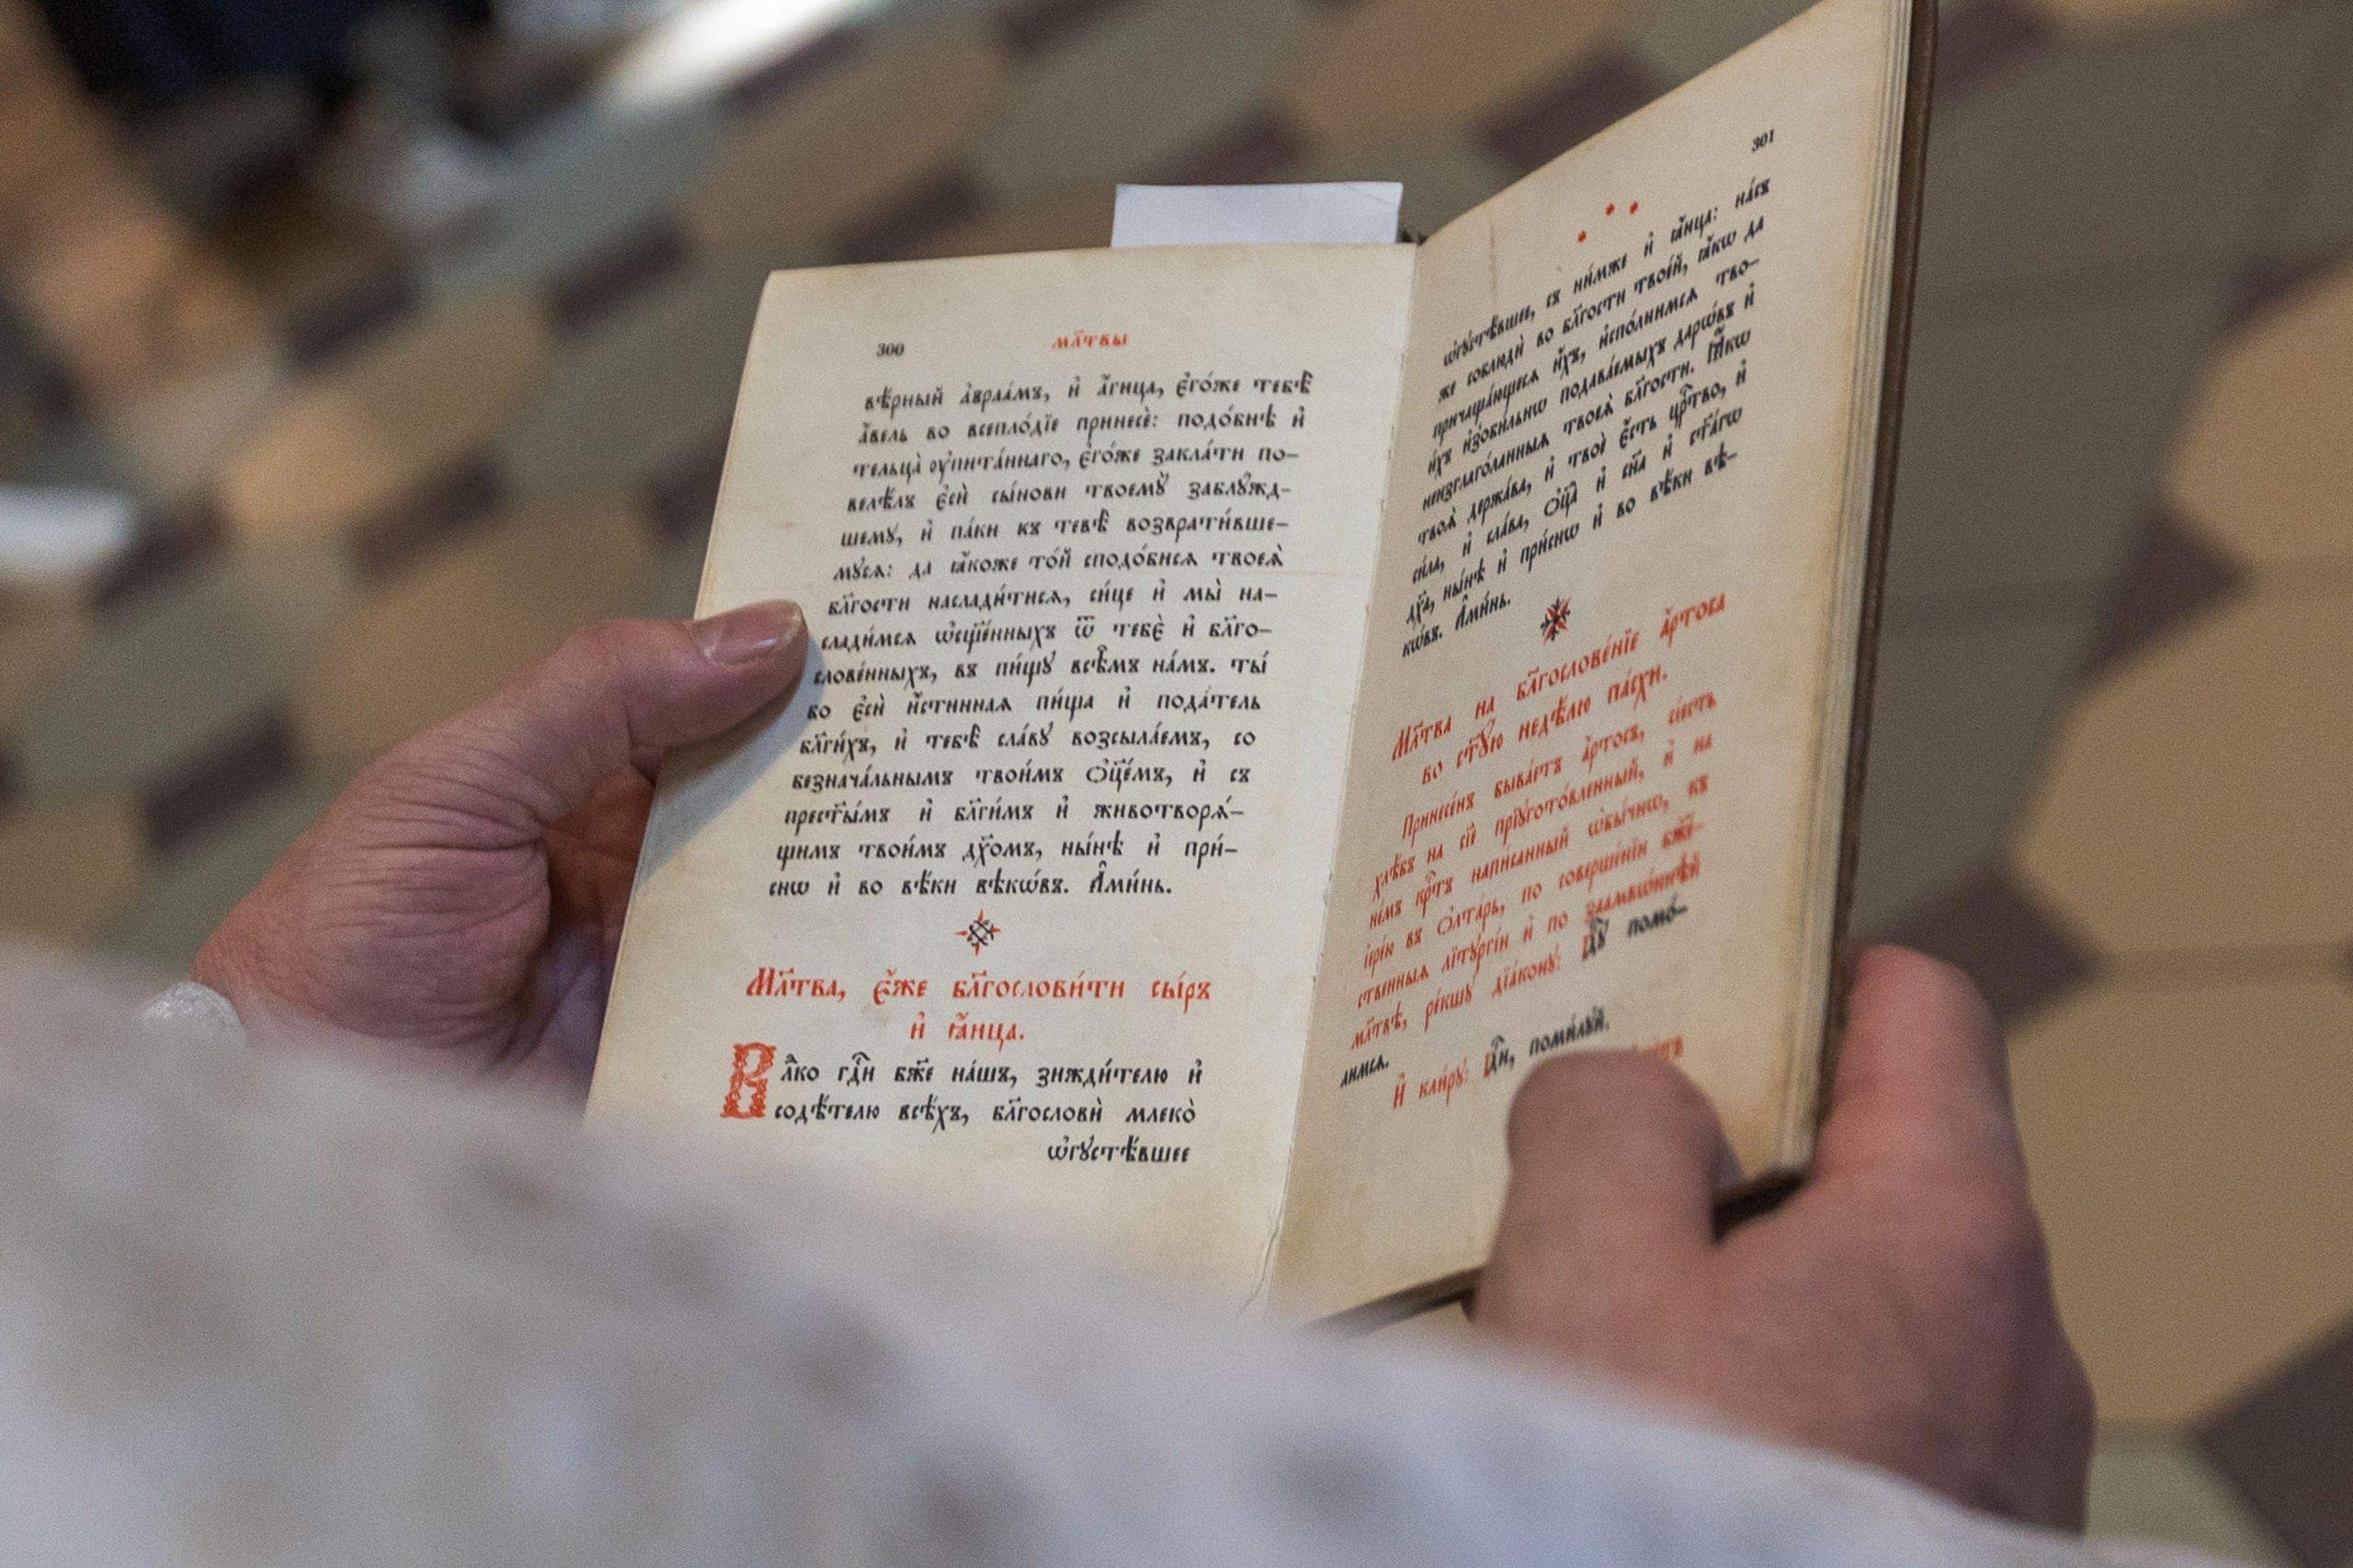 300 мл҃твы
вѣ́рный а҆враа́мъ, и҆ а҆́гнца, є҆го́же тебѣ̀
а҆́вель во всепло́дїе принесѐ: подо́бнѣ и҆
тельца̀ ᲂу҆пита́ннаго, є҆го́же закла́ти по-
велѣ́лъ є҆сѝ сы́нови твоемꙋ̀ заблꙋ́жд-
шемꙋ, и҆ па́ки къ тебѣ̀ возврати́вше-
мꙋсѧ: да ꙗ҆́коже то́й сподо́бисѧ твоеѧ̀
бл҃гости наслади́тисѧ, си́це и҆ мы̀ на-
слади́мсѧ ѡ҆сщ҃е́нныхъ ѿ тебє̀ и҆ бл҃го-
слове́нныхъ, въ пи́щꙋ всѣ̑мъ на́мъ. ты́
бо є҆сѝ и҆́стиннаѧ пи́ща и҆ пода́тель
бл҃ги́хъ, и҆ тебѣ̀ сла́вꙋ возсыла́емъ, со
безнача́льнымъ твои́мъ ѻ҆ц҃е́мъ, и҆ съ
прест҃ы́мъ и҆ бл҃ги́мъ и҆ животворѧ́-
щимъ твои́мъ дх҃омъ, ны́нѣ и҆ при́-
снѡ и҆ во вѣ́ки вѣкѡ́въ. А҆ми́нь.
Мл҃тва, є҆́же бл҃гослови́ти сы́ръ
и҆ ꙗ҆́ица.
Влⷣко гдⷭ҇и бж҃е на́шъ, зижди́телю и҆
содѣ́телю всѣ́хъ, бл҃гословѝ млеко̀
ѡ҆гꙋстѣ́вшее
301
ѡ҆гꙋстѣ́вшее, съ ни́мже и҆ ꙗ҆́ица: на́съ
же соблюдѝ во бл҃гости твое́й, ꙗ҆́кѡ да
причаща́ющесѧ и҆́хъ, и҆спо́лнимсѧ тво-
и́хъ и҆зоби́льнѡ подава́емыхъ дарѡ́въ и҆
неизглаго́ланныѧ твоеѧ̀ бл҃гости. Ꙗ҆́кѡ
твоѧ̀ держа́ва, и҆ твоѐ є҆́сть црⷭ҇тво, и҆
си́ла, и҆ сла́ва, ѻ҆ц҃а̀ и҆ сн҃а и҆ ст҃а́гѡ
дх҃а, ны́нѣ и҆ при́снѡ и҆ во вѣ́ки вѣ-
кѡ́въ. А҆ми́нь.
Мл҃тва на бл҃гослове́нїе а҆́ртоса
во ст҃ꙋ́ю недѣ́лю па́схи.
Принесе́нъ быва́етъ а҆́ртосъ, сїе́сть
хлѣ́бъ на сїѐ прїꙋгото́вленный, и҆ на
не́мъ крⷭ҇тъ напи́санный ѡ҆бы́чнѡ, къ
і҆ере́ю въ ѻ҆лта́рь, по соверше́нїи бж҃е́-
ственныѧ лїтꙋргі́и и҆ по заамвѡ́ннѣй
мл҃твѣ, ре́кшꙋ дїа́конꙋ: Гдⷭ҇ꙋ помо́-
лимсѧ.
И҆ кли́рꙋ: Гдⷭ҇и, поми́лꙋй.